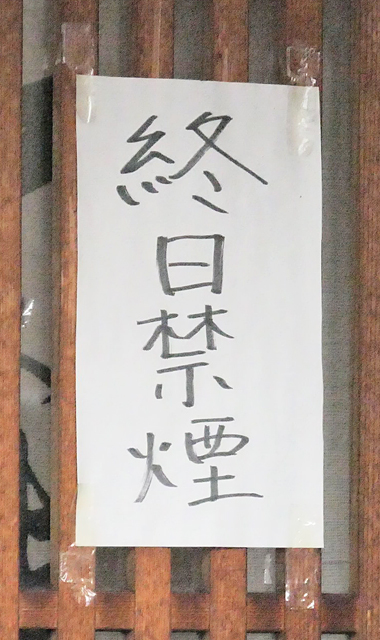 終日禁煙